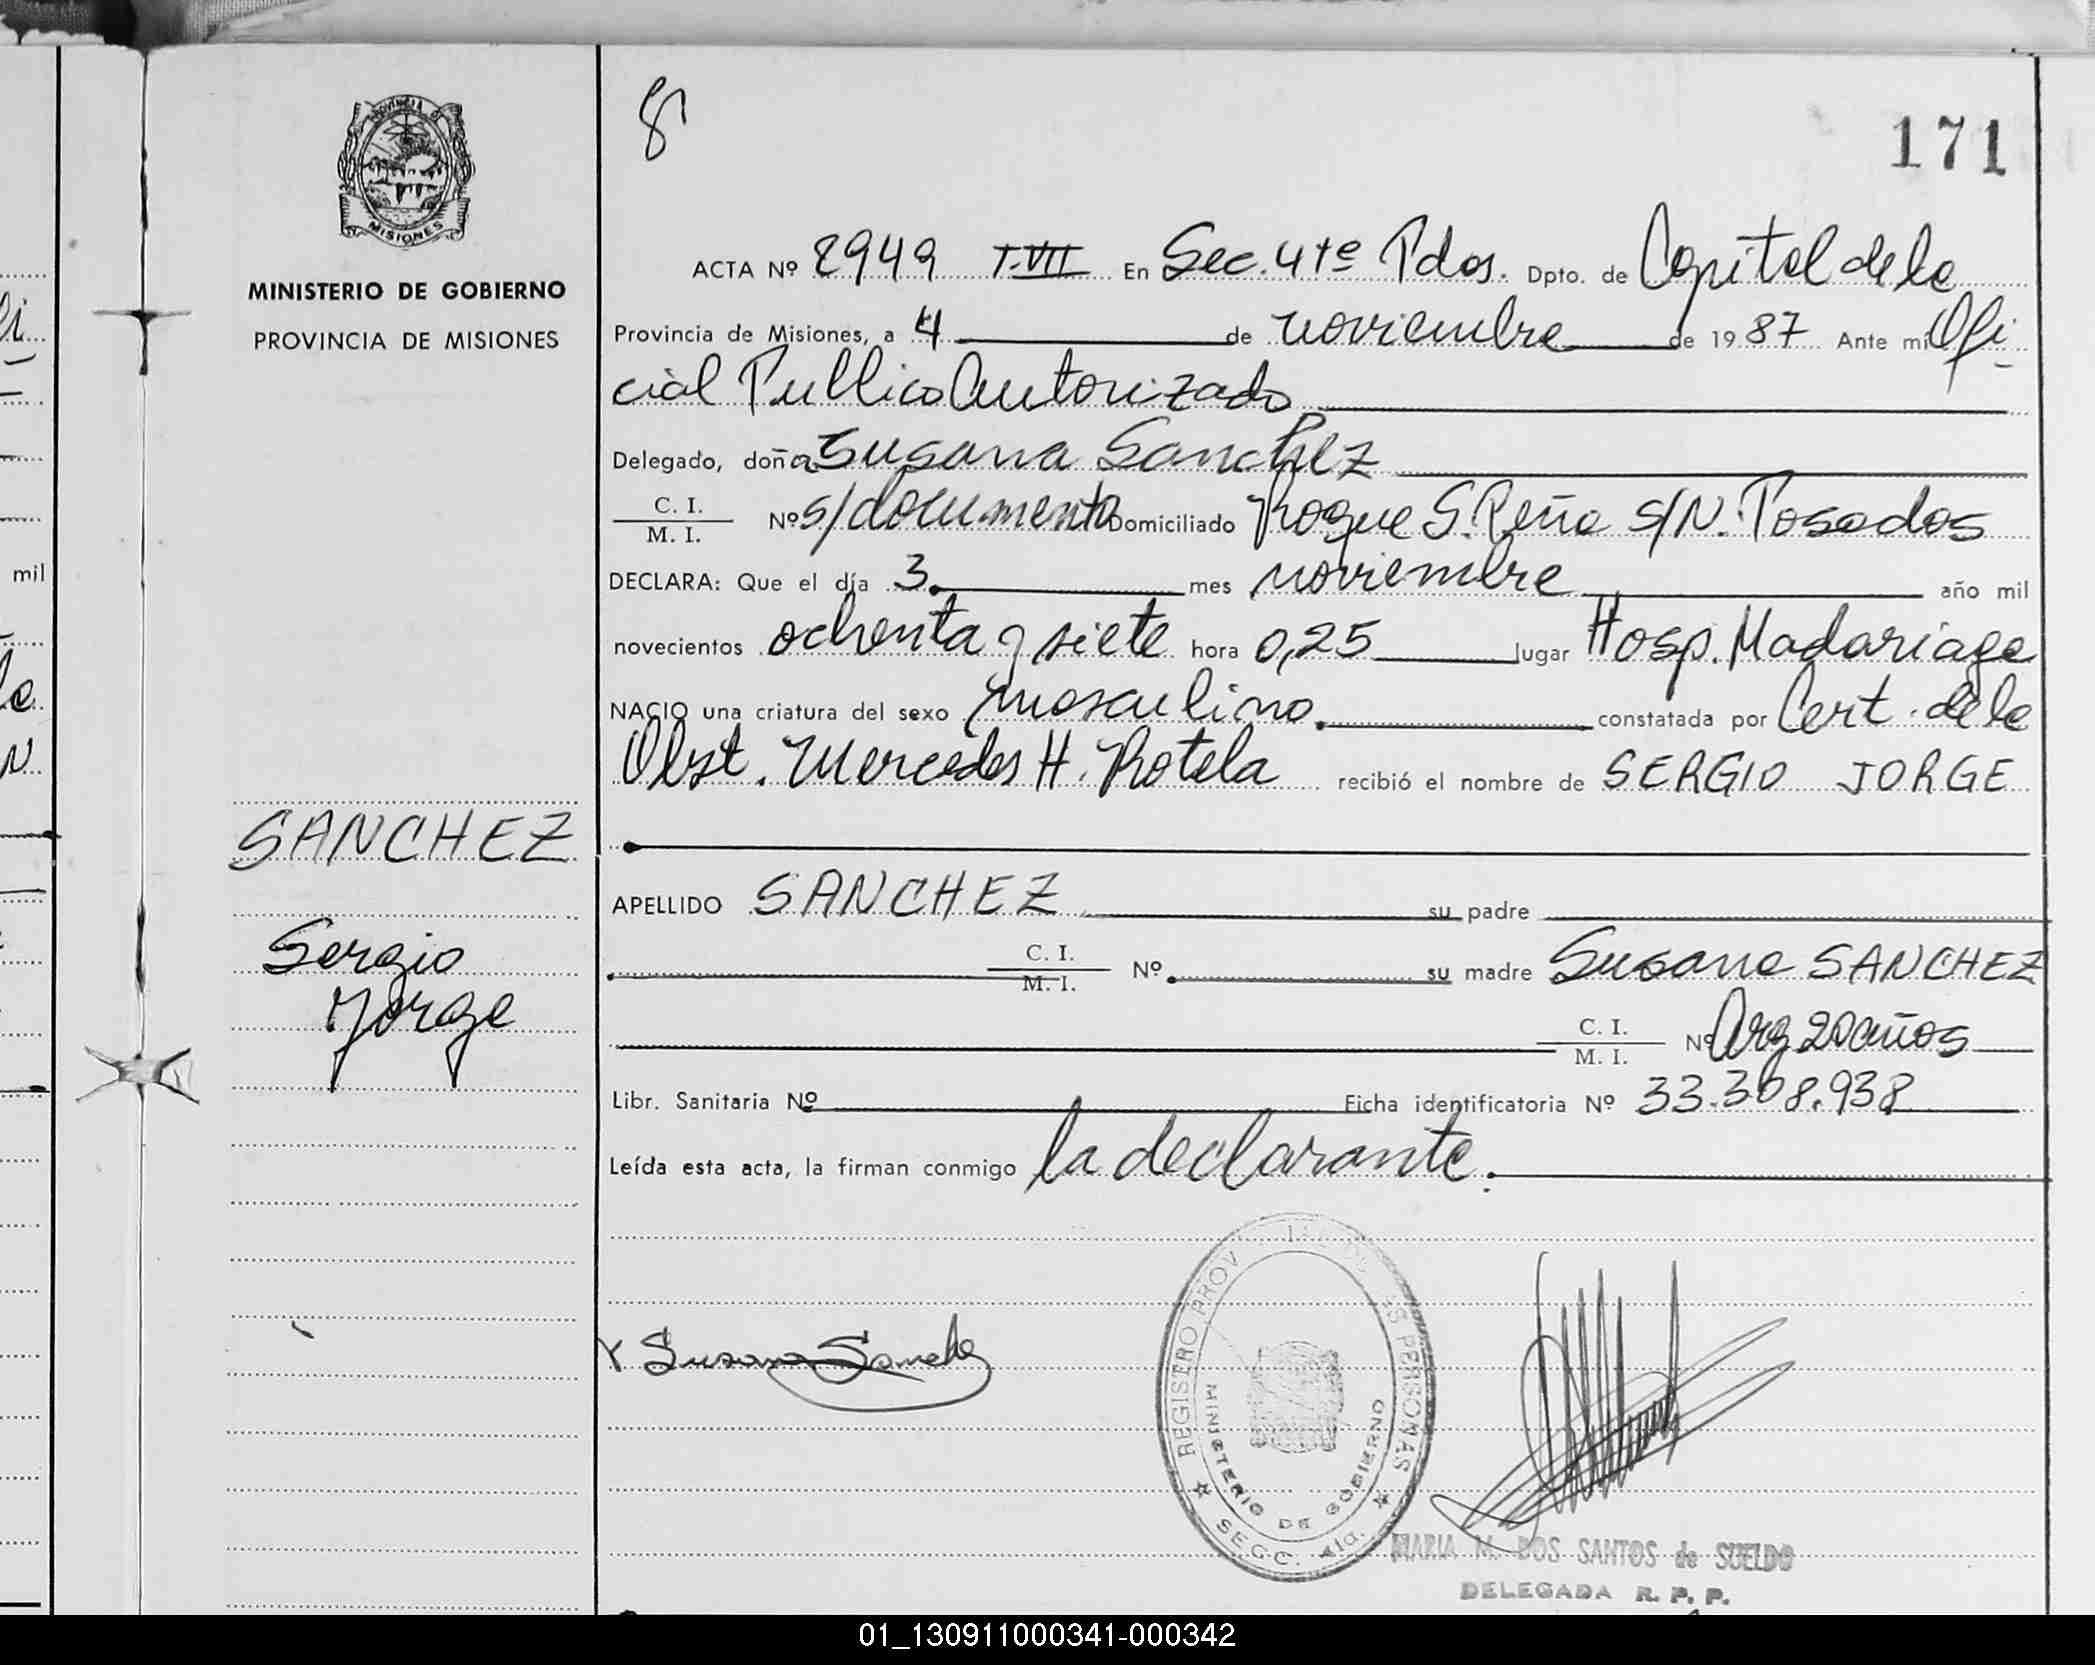 8
171
PROVINCIA D
MISIONES
MINISTERIO DE GOBIERNO
PROVINCIA DE MISIONES
ACTA Nº 2949 T.VII En Sec. 4ta Pdas. Dpto. de Capital de la
Provincia de Misiones, a 4 de noviembre de 1987 Ante mí Ofi
cial Publico Autorizado
Delegado, doña Susana Sanchez
C. I.
M. I. Nº s/documento Domiciliado Roque S. Peña S/N. Posadas
DECLARA: Que el día 3 mes noviembre año mil
novecientos ochenta y siete hora 0,25 lugar Hosp. Madariaga
NACIO una criatura del sexo masculino constatada por Cert. de la
Obst. Mercedes H. Rotela recibió el nombre de SERGIO JORGE
SANCHEZ
APELLIDO SANCHEZ su padre
Sergio
Jorge
C. I.
M. I. Nº su madre Susana SANCHEZ
C. I.
M. I. Nº Arg 20 años
Libr. Sanitaria Nº Ficha identificatoria Nº 33.308.938
Leída esta acta, la firman conmigo la declarante.
x Susana Sanchez
REGISTRO PROV AS PERSONAS
MINISTERIO DE GOBIERNO
SECC. 4ta.
MARIA M. DOS SANTOS de SUELDO
DELEGADA R. P. P.
mil
01_130911000341-000342